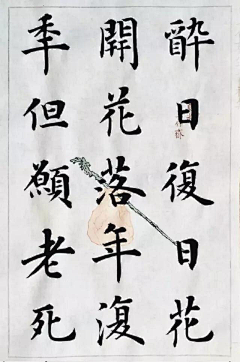 酔日復日花
開花落年復
秊但願老死